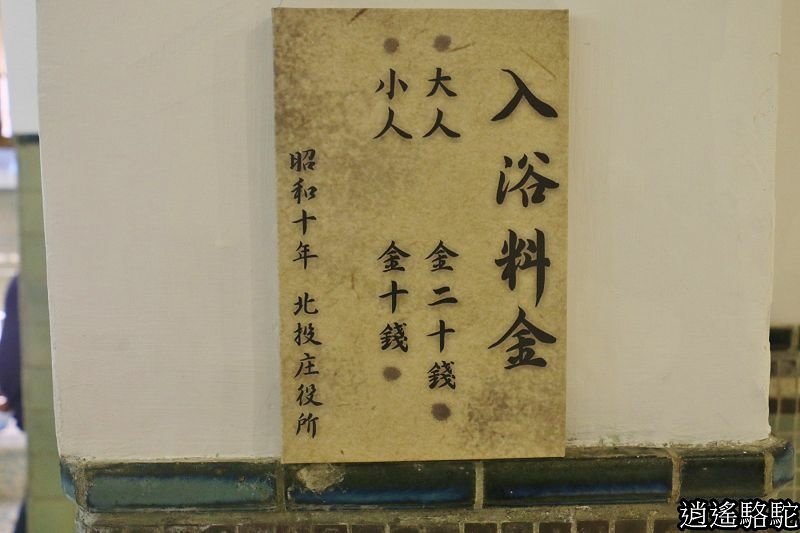 入浴料金
大人 金二十錢
小人 金十錢
昭和十年 北投庄役所
逍遙駱駝